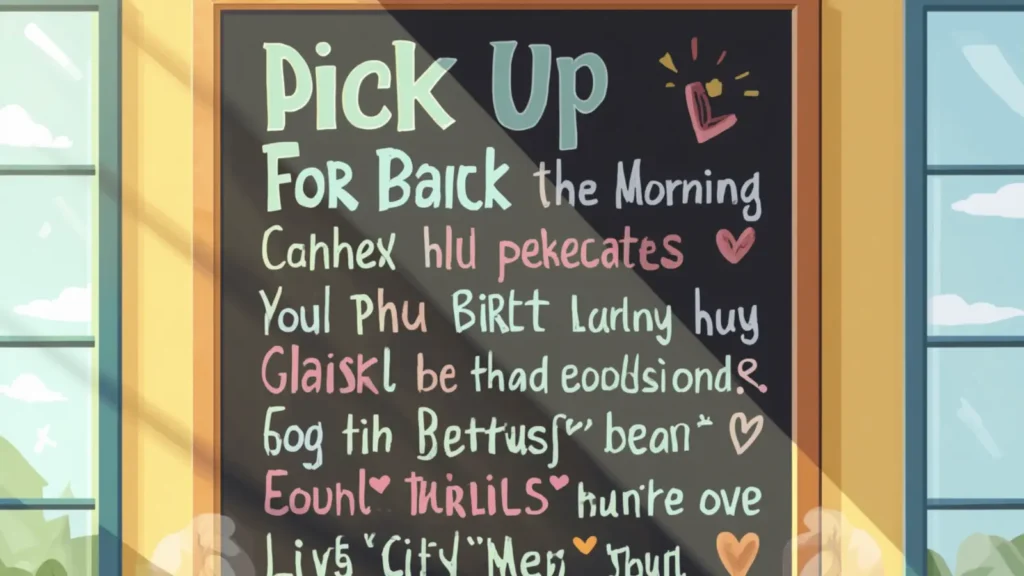 Pick Up
For Baick the Morning
Cahhex hlu pekecates
Youl Phu BiRtt Lurlny huy
Glaiskl be thad
bog tih Bettus bean
Eouhl THRLILS hunire ove
Livs "City" Mer